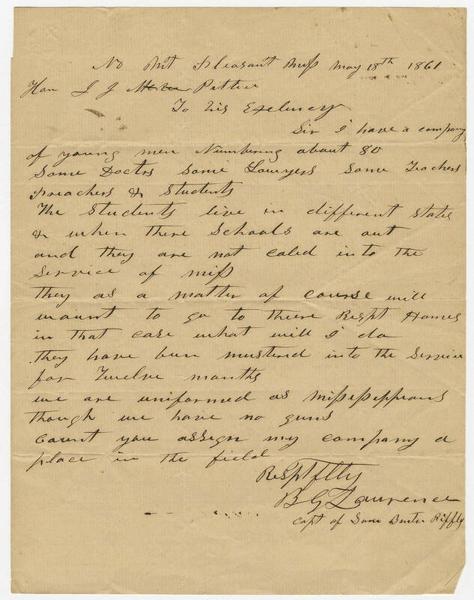 No Mnt Pleasant Miſs May 18th 1861
Hon J J Pettus
To his Exelency
Sir I have a company
of young men Numbering about 80
Some Doctrs Some Lawyers Some Teachers
Preachers & Students
The Students live in different states
& when there Schools are out
and they are not caled into the
Service of Miſs
they as a matter of course will
waunt to go to there Respt Homes
in that case what will I do
they have bun mustered into the Service
for Twelve months
we are uniformed as Miſsiſsippians
though we have no guns
Cannt you assign my company a
place in the field
Resptflly
B G Lawrence
Capt of